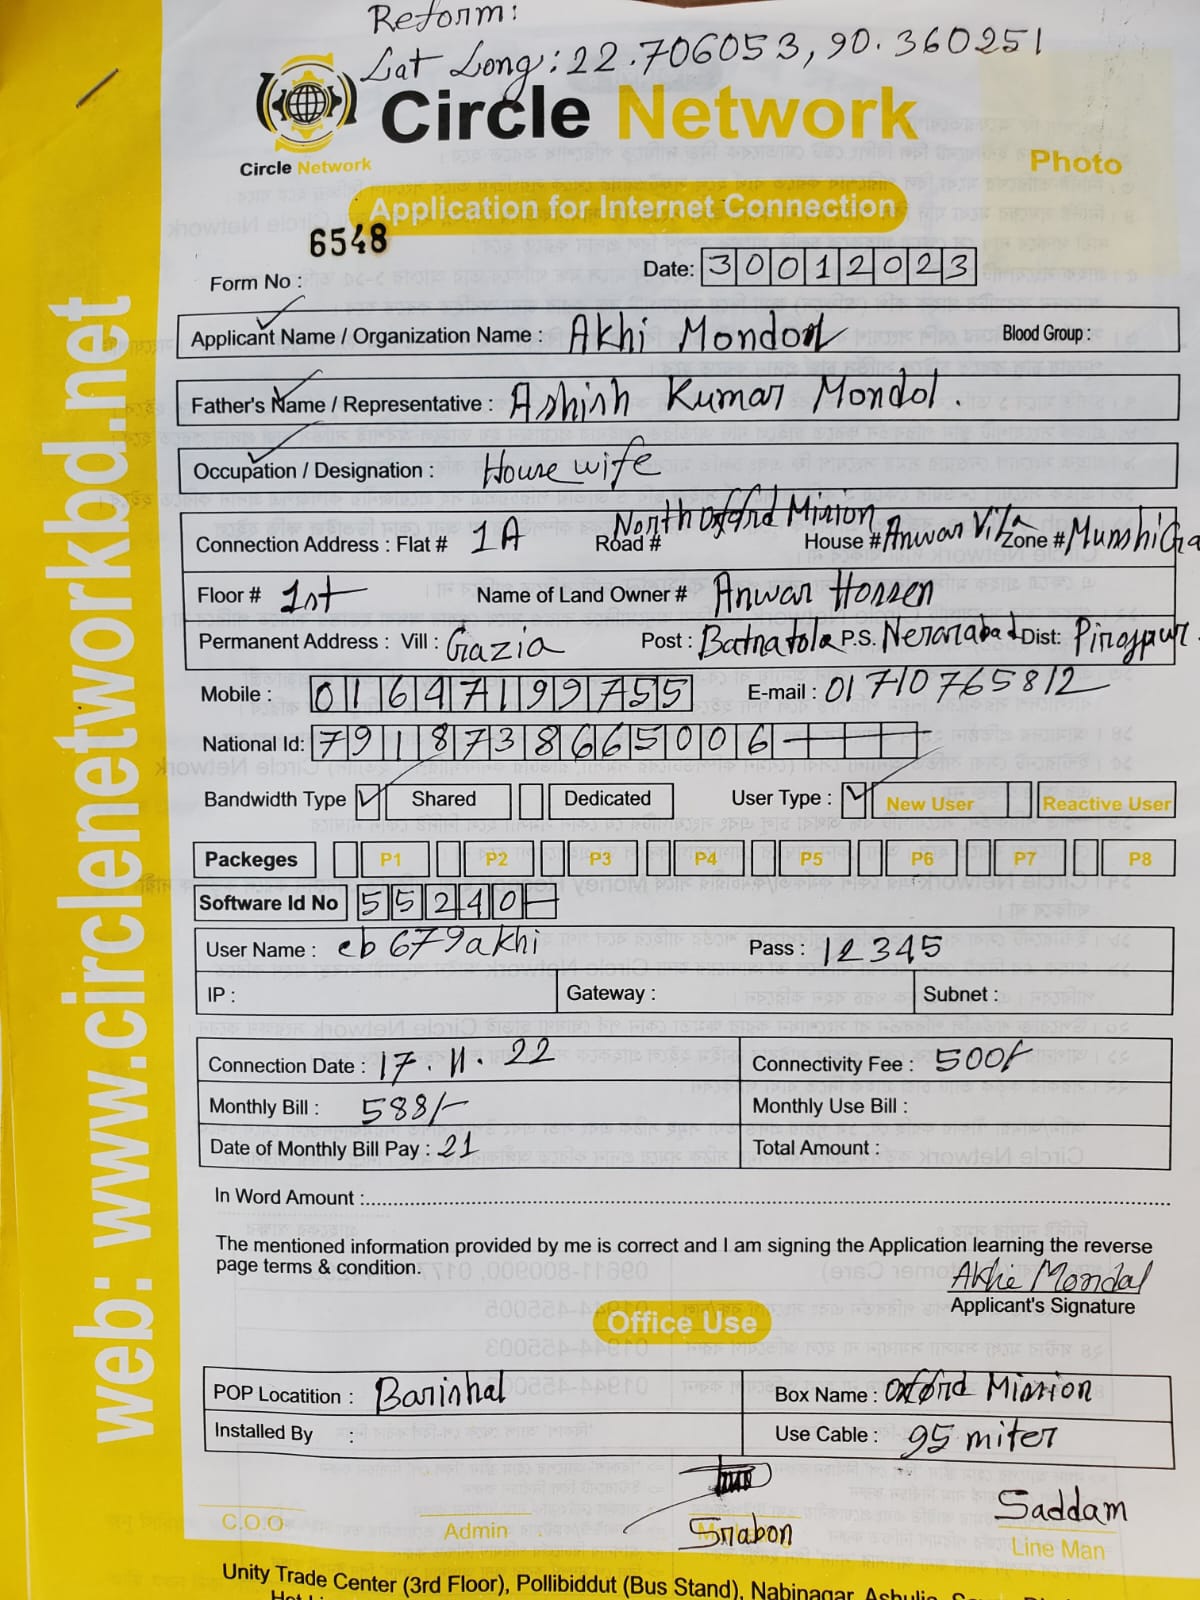 Reform:
Lat Long: 22.706053, 90.360251
Circle Network
Circle Network
Photo
Application for Internet Connection
6548
Form No :
Date: 30012023
Applicant Name / Organization Name : Akhi Mondol Blood Group :
Father's Name / Representative : Ashish Kumar Mondol.
Occupation / Designation : House wife
Connection Address : Flat # 1A Road # North Oxford Mission House # Anwar Vila Zone # Munshi Ga
Floor # 1st Name of Land Owner # Anwar Hossen
Permanent Address : Vill : Gazia Post : Batnatola P.S. Nesarabad Dist: Pirojpur
Mobile : 01647199755 E-mail : 01710765812
National Id: 7918738665006
Bandwidth Type Shared Dedicated User Type : New User Reactive User
Packeges P1 P2 P3 P4 P5 P6 P7 P8
Software Id No 55240-
User Name : cb679akhi Pass : 12345
IP : Gateway : Subnet :
Connection Date : 17.11.22 Connectivity Fee : 500/-
Monthly Bill : 588/- Monthly Use Bill :
Date of Monthly Bill Pay : 21 Total Amount :
In Word Amount :
The mentioned information provided by me is correct and I am signing the Application learning the reverse
page terms & condition.
Akhi Mondal
Applicant's Signature
Office Use
POP Locatition : Barishal Box Name : Oxford Mission
Installed By : Use Cable : 95 miter
Srabon Saddam
C.O.O Admin Line Man
Unity Trade Center (3rd Floor), Pollibiddut (Bus Stand), Nabinagar, Ashulia,
web: www.circlenetworkbd.net